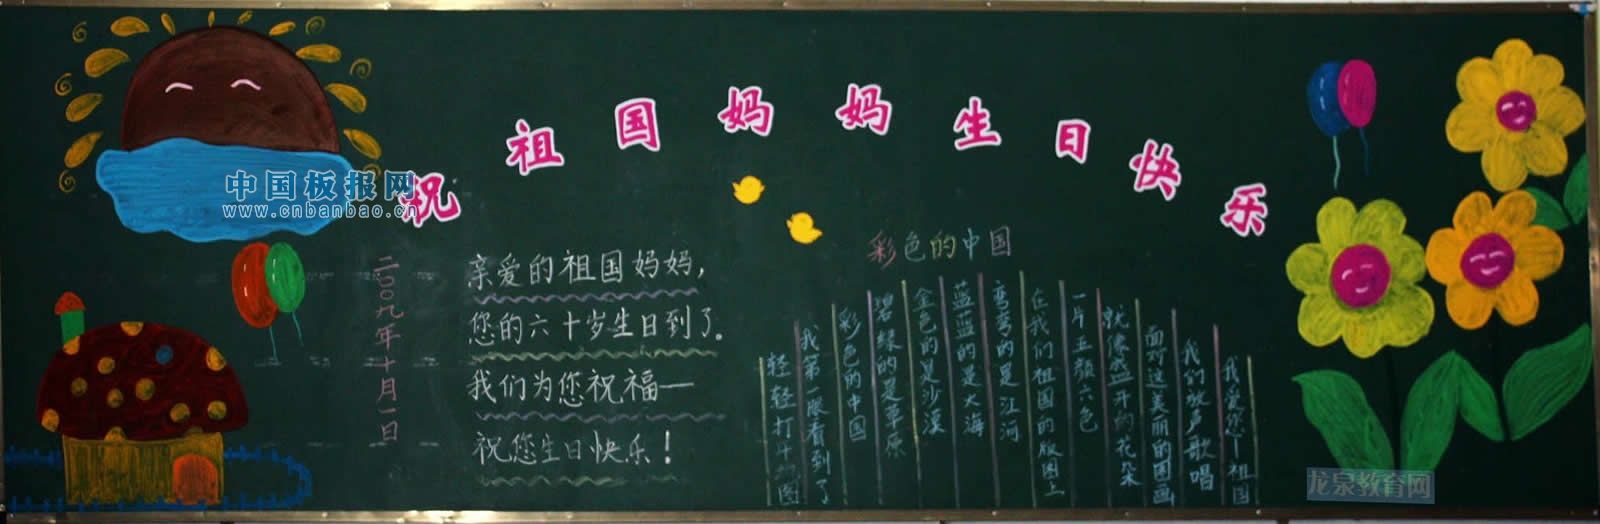 祝祖国妈妈生日快乐
中国板报网
www.cnbanbao.cn
二〇〇九年十月一日
亲爱的祖国妈妈,
您的六十岁生日到了。
我们为您祝福—
祝您生日快乐！
彩色的中国
轻轻打开 图
我第一眼看到了
彩色的中国
碧绿的是草原
金色的是沙漠
蓝蓝的是大海
弯弯的是江河
在我们祖国的版图上
一片五颜六色
就像盛开的花朵
面对这美丽的图画
我们放声歌唱
我爱您！祖国
龙泉教育网